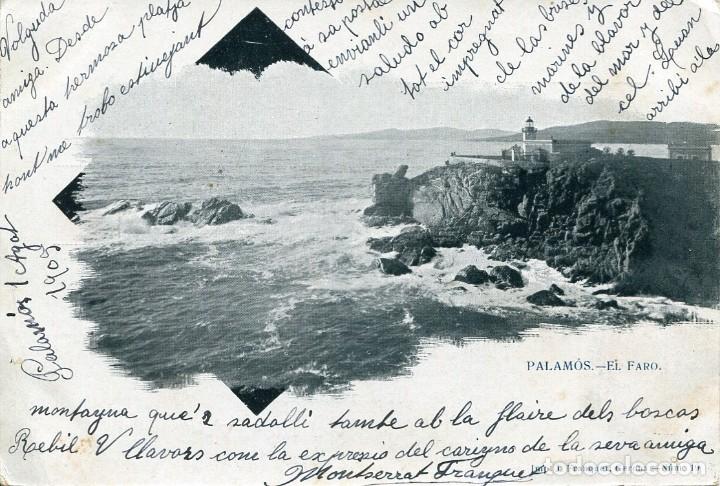 Volguda
amiga. Desde
aquesta hermosa platja
hont me trobo estiuejant
contesto
á sa postal
envianli un
saludo ab
tot el cor
impregnat
de las brisas
marines y
de la blavor
del mar y del
cel. Quan
arribi á la
Palamós 1 Agost
1905
PALAMÓS.—EL FARO.
montanya que's sadolli tambe ab la flaire dels boscos
Reebil V llavors com la expresio del carinyo de la seva amiga
Montserrat
Imp. Franquet, Gerona.—Núm.
todocoleccion